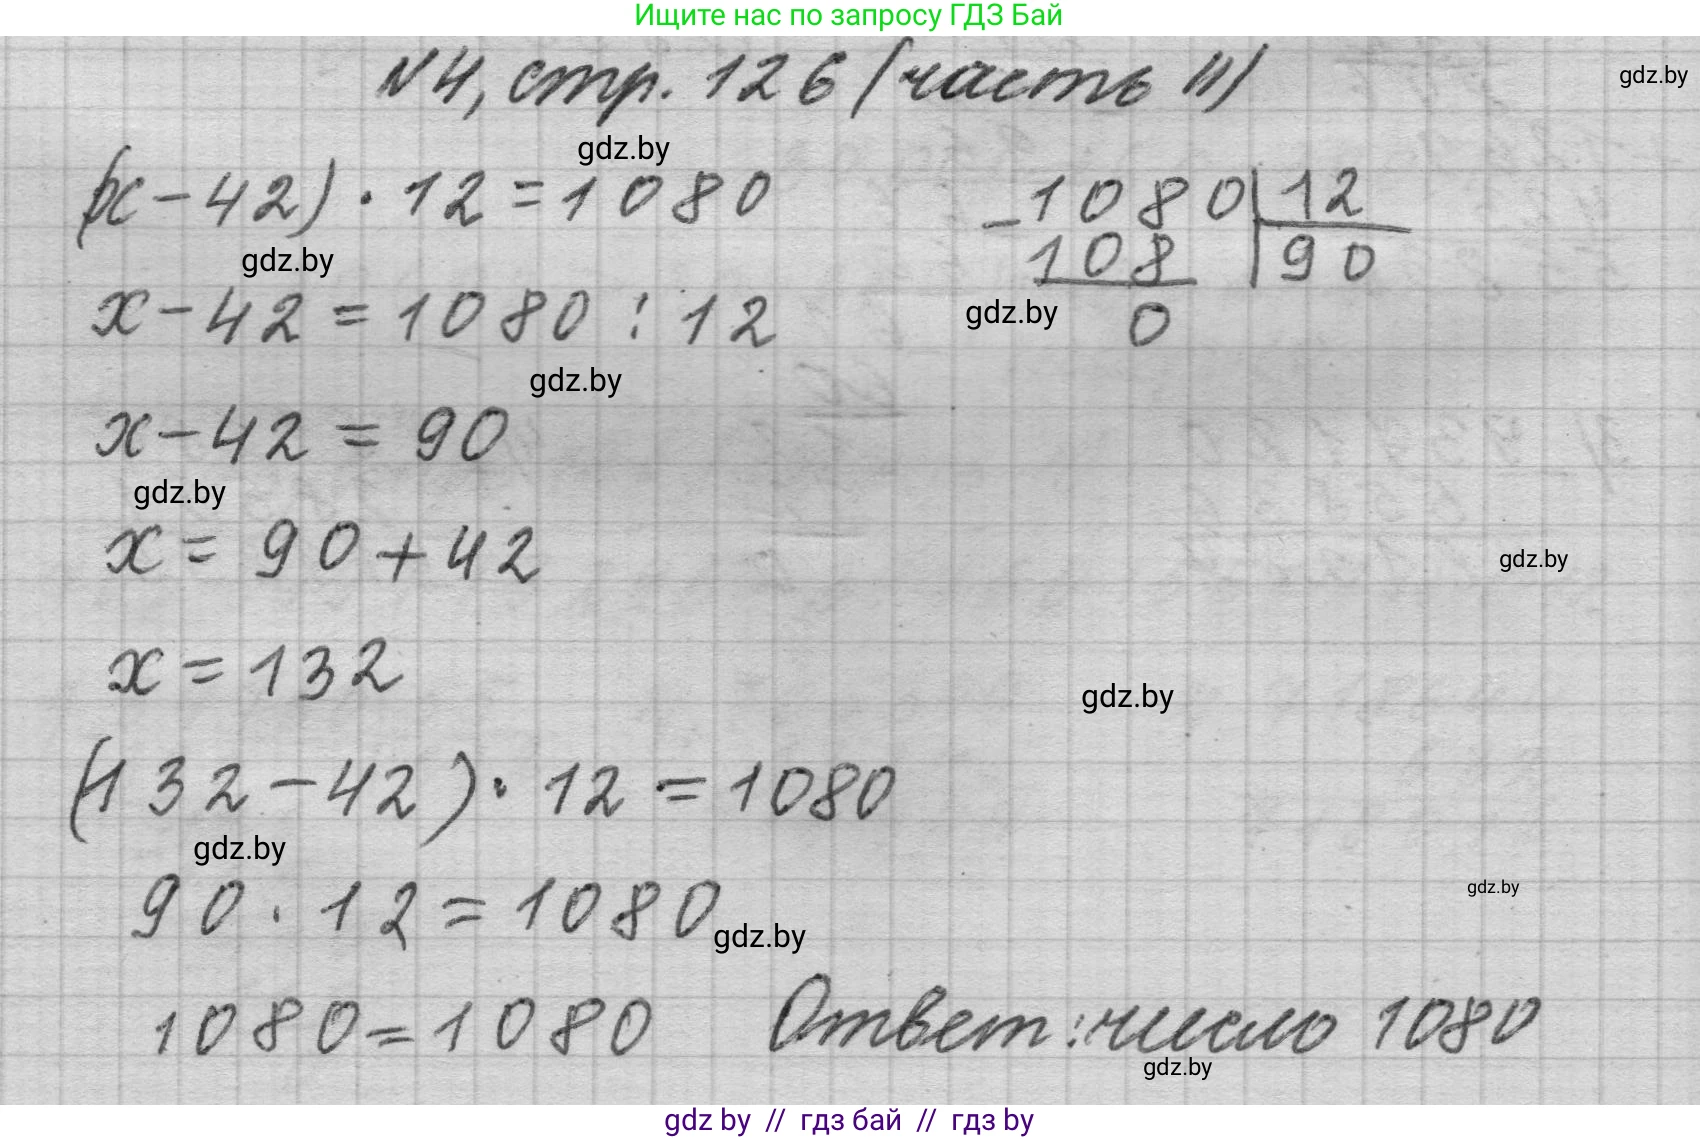 Ищите нас по запросу ГДЗ Бай
№4, стр. 126 (часть II)
gdz.by
gdz.by
(x-42)·12=1080
-1080|12
108 |90
0
gdz.by
gdz.by
x-42=1080:12
gdz.by
x-42=90
gdz.by
x=90+42
gdz.by
x=132
gdz.by
(132-42)·12=1080
gdz.by
90·12=1080
gdz.by
gdz.by
1080=1080
Ответ: число 1080
gdz.by
gdz by // гдз бай // гдз by